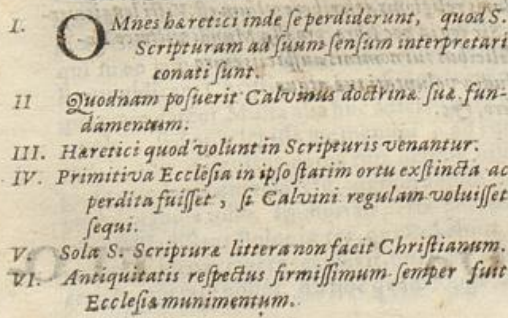 I. OMnes hæretici inde ſe perdiderunt, quod S.
Scripturam ad ſuum ſenſum interpretari
conati ſunt.
II Quodnam poſuerit Calvinus doctrinæ ſuæ fun-
damentum.
III. Hæretici quod volunt in Scripturis venantur.
IV. Primitiva Eccleſia in ipſo ſtatim ortu exſtincta ac
perdita fuiſſet, ſi Calvini regulam voluiſſet
ſequi.
V. Sola S. Scripturæ littera non facit Chriſtianum.
VI. Antiquitatis reſpectus firmiſſimum ſemper fuit
Eccleſiæ munimentum.